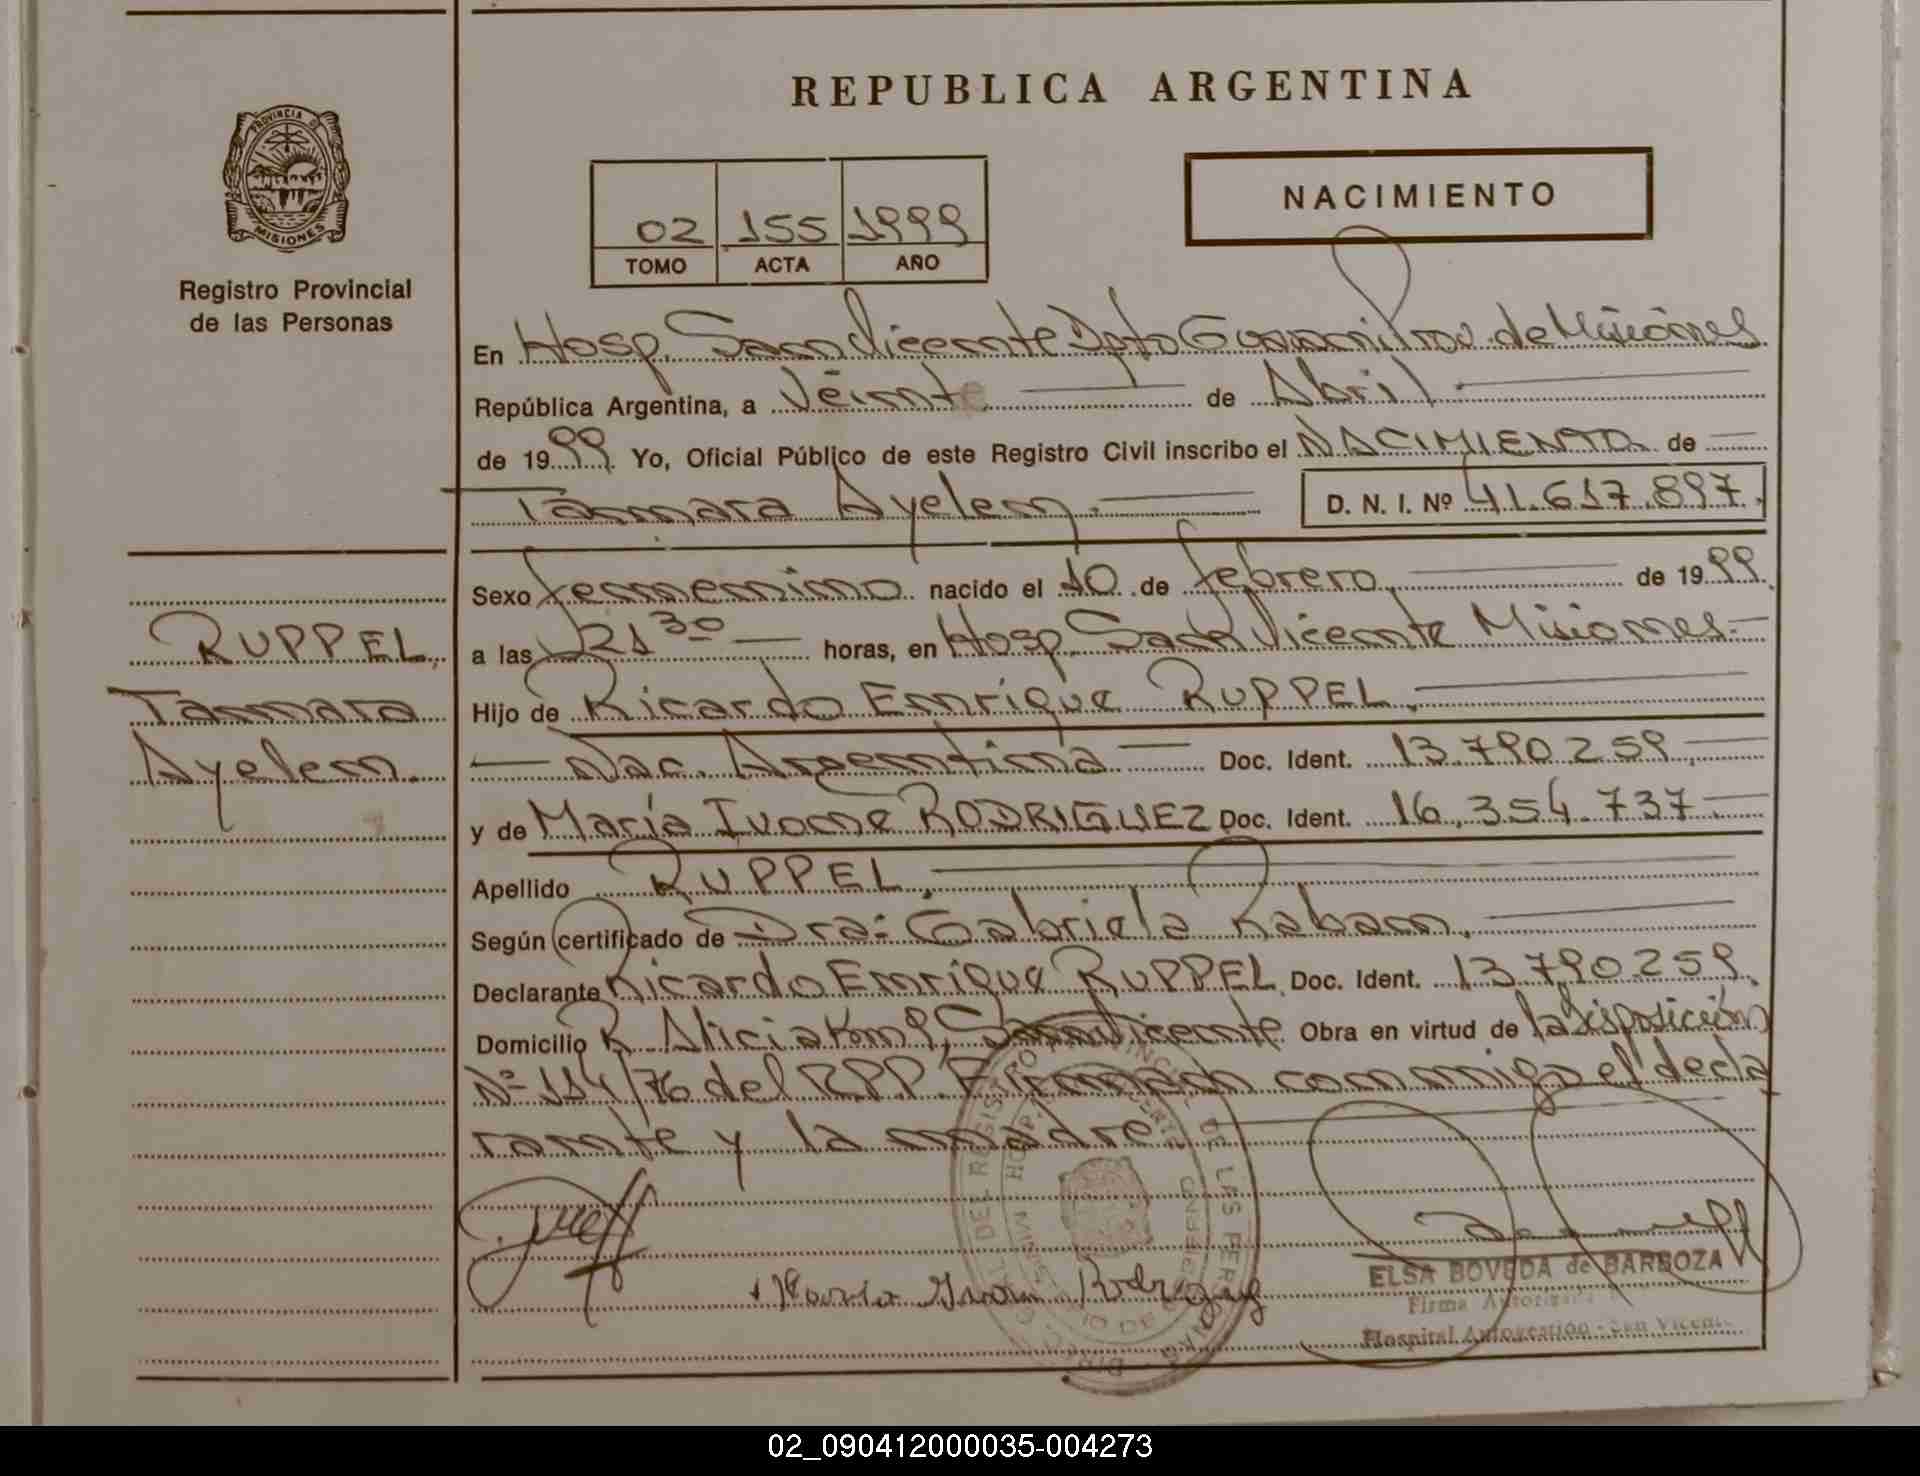 REPUBLICA ARGENTINA
PROVINCIA DE
MISIONES
Registro Provincial
de las Personas
02 155 1999
TOMO ACTA AÑO
NACIMIENTO
En Hosp. San Vicente Dpto Guaraní Prov. de Misiones
República Argentina, a Veinte de Abril
de 1999 Yo, Oficial Público de este Registro Civil inscribo el NACIMIENTO de
Tamara Ayelen. D. N. I. Nº 41.617.897.
Sexo femenino nacido el 10 de febrero de 1999
a las 21 30 horas, en Hosp. San Vicente Misiones.
Hijo de Ricardo Enrique RUPPEL.
Nac. Argentina Doc. Ident. 13.790.259
y de María Ivone RODRIGUEZ Doc. Ident. 16.354.737
Apellido RUPPEL.
Según certificado de Dra: Gabriela Raban.
Declarante Ricardo Enrique RUPPEL Doc. Ident. 13.790.259.
Domicilio P. Alicia Km 9, San Vicente Obra en virtud de la disposición
Nº 114/76 del RPP. Firman conmigo el decla
rante y la madre.
RUPPEL,
Tamara
Ayelen.
María Ivone Rodriguez
ELSA BOVEDA de BARBOZA
Firma Autorizada
Hospital Autogestión - San Vicente
02_090412000035-004273